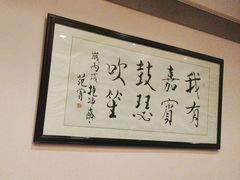 我有
嘉賓
鼓瑟
吹笙
歲丙戌
范曾